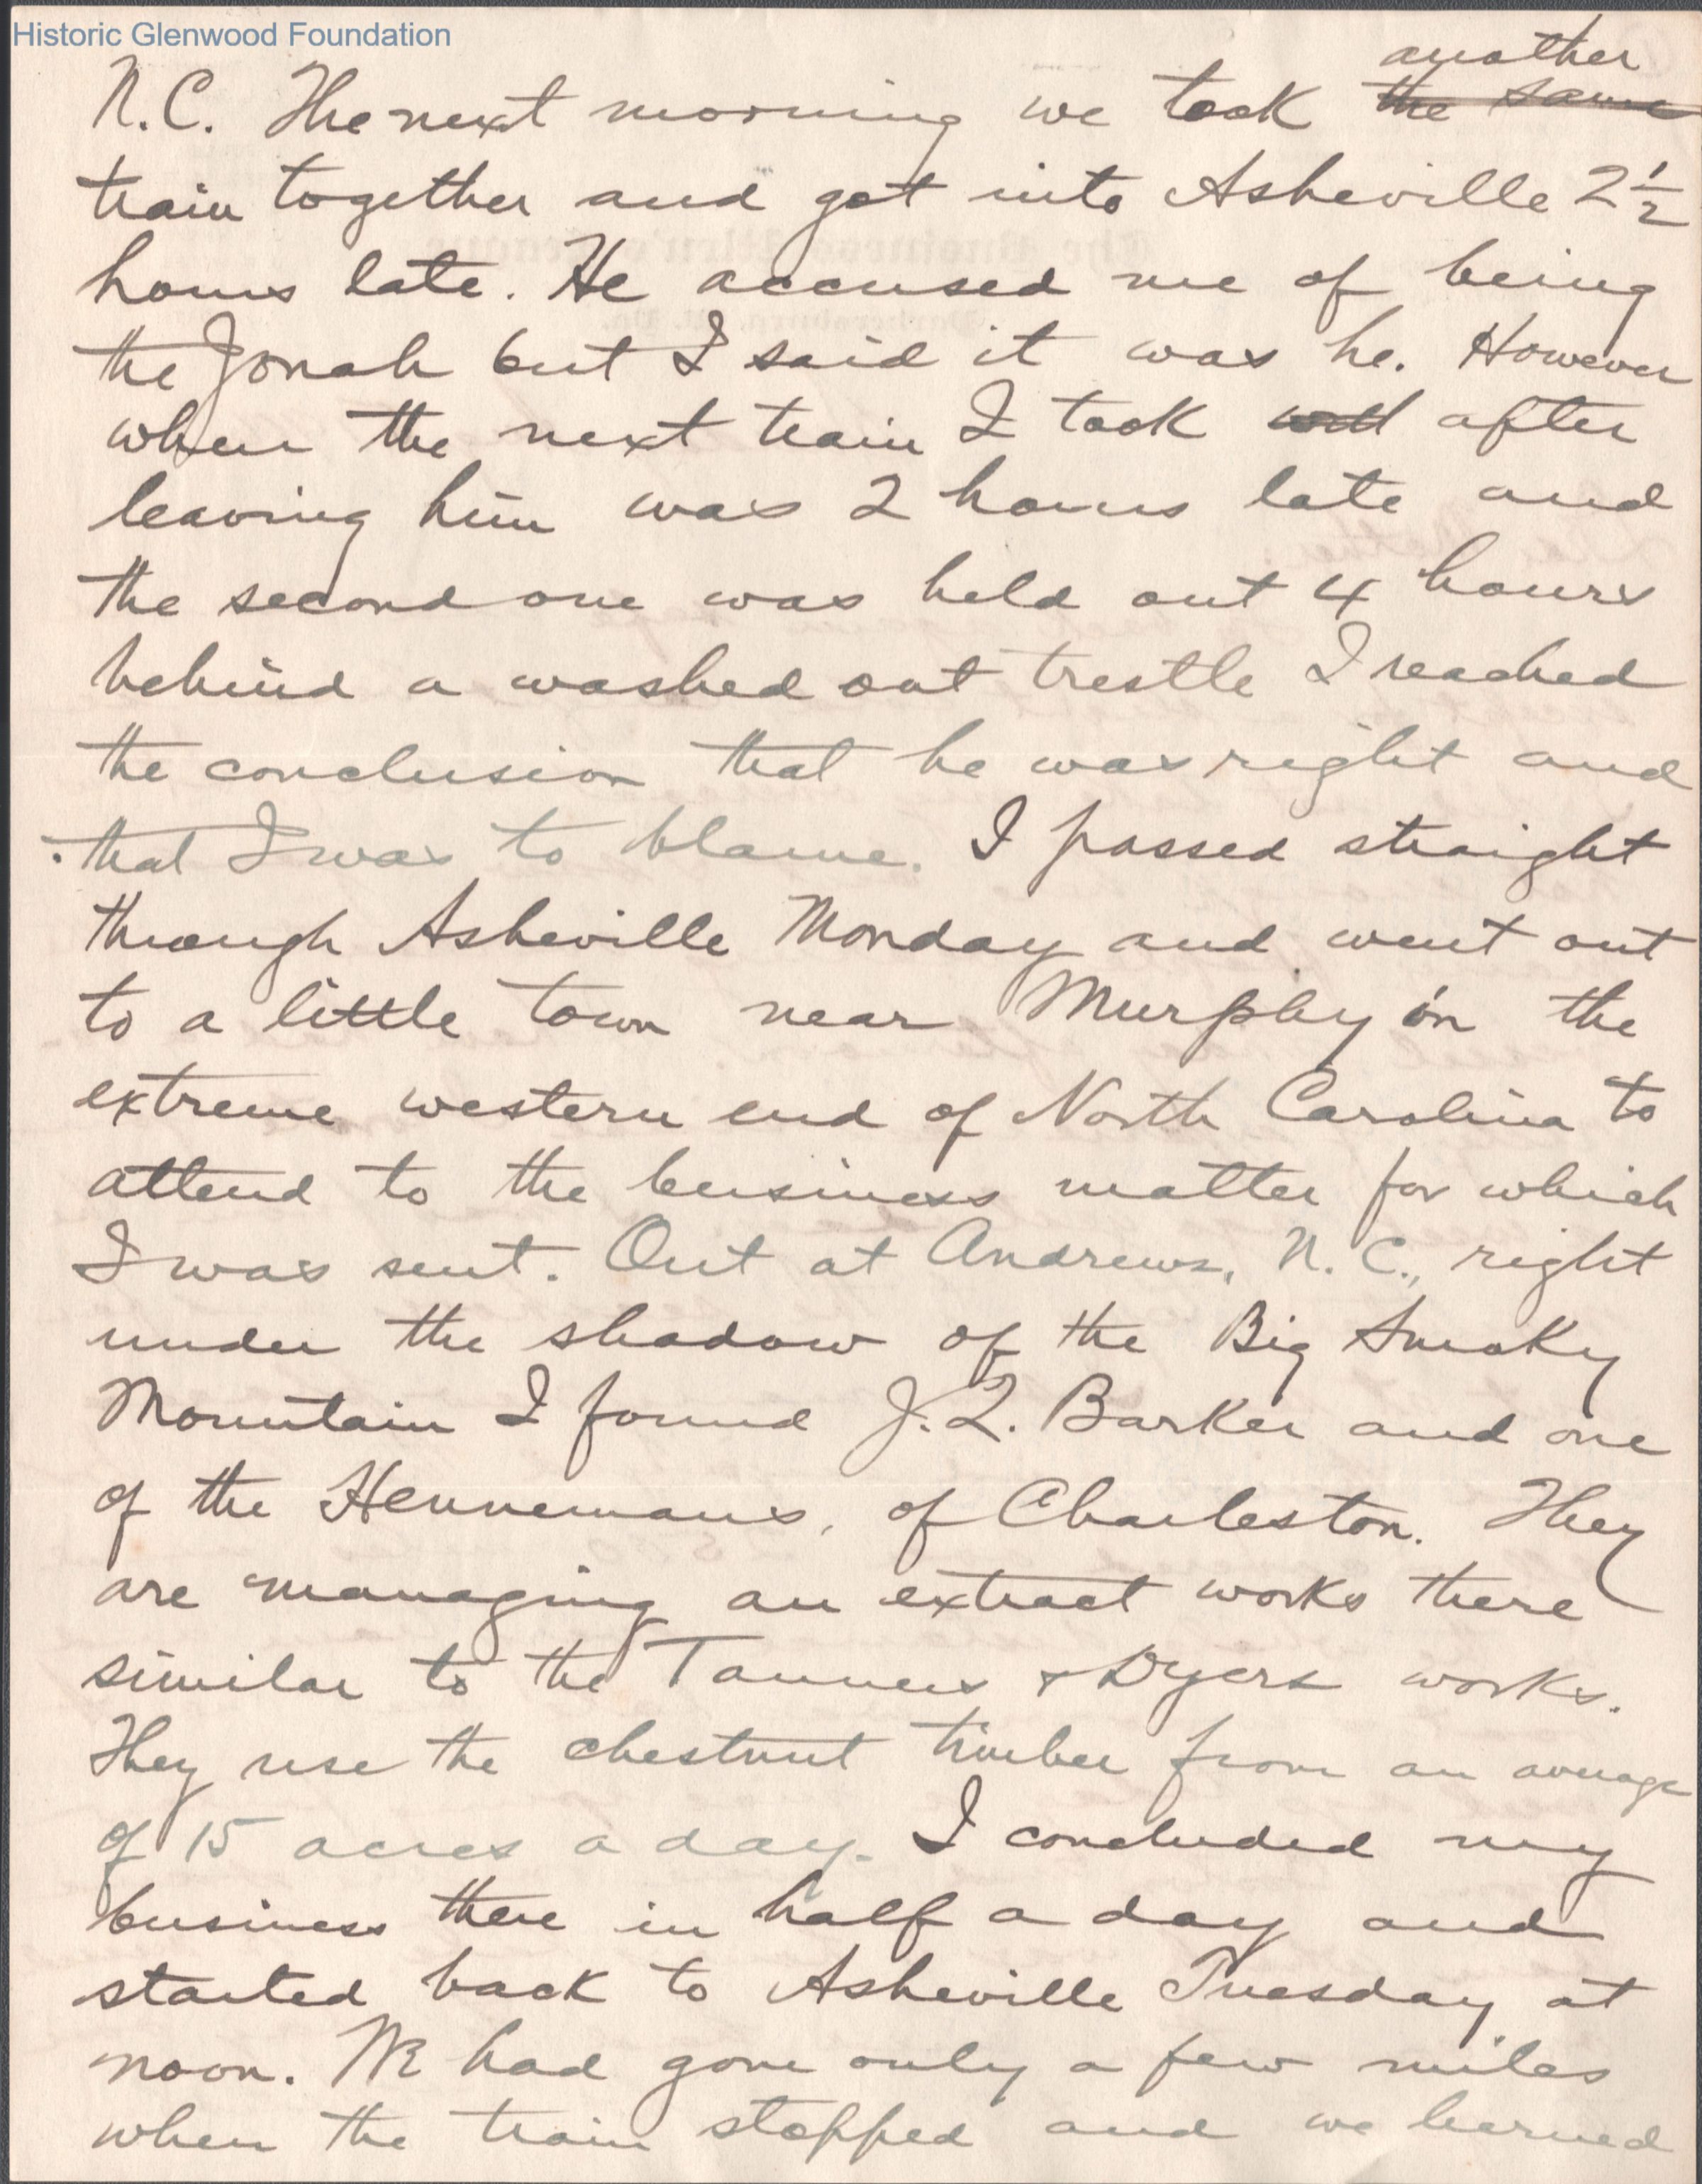 Historic Glenwood Foundation
another
N.C. The next morning we took ~~the same~~
train together and got into Asheville 2½
hours late. He accused me of being
the Jonah but I said it was he. However
when the next train I took after
leaving him was 2 hours late and
the second one was held out 4 hours
behind a washed out trestle I reached
the conclusion that he was right and
that I was to blame. I passed straight
through Asheville Monday and went out
to a little town near Murphy in the
extreme western end of North Carolina to
attend to the business matter for which
I was sent. Out at Andrews, N.C., right
under the shadow of the Big Smoky
Mountain I found J.Q. Barker and one
of the Hennemans, of Charleston. They
are managing an extract works there
similar to the Tanners & Dyers works.
They use the chestnut timber from an average
of 15 acres a day. I concluded my
business there in half a day and
started back to Asheville Tuesday at
noon. We had gone only a few miles
when the train stopped and we learned